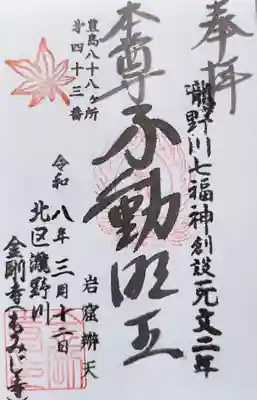 奉拝
瀧野川七福神創設元文二年
本尊不動明王
岩窟辨天
豊島八十八ヶ所
第四十三番
令和八年三月十二日
北区瀧野川
金剛寺(もみじ寺)